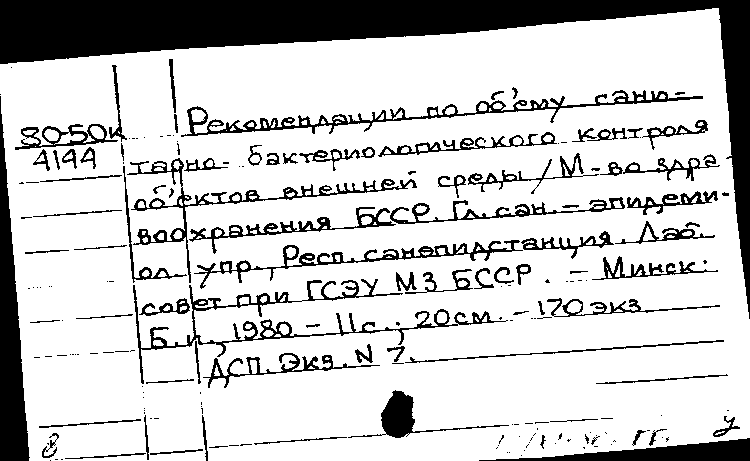 80-50к
4144
Рекомендации по об'ему сани-
тарно-бактериологического контроля
об'ектов внешней среды / М-во здра-
воохранения БССР. Гл. сан.-эпидеми-
ол. упр., Респ. санэпидстанция. Лаб.
совет при ГСЭУ МЗ БССР. - Минск:
Б.и., 1980 - 11с.; 20см. - 170 экз.
ДСП. Экз. N 7.
в